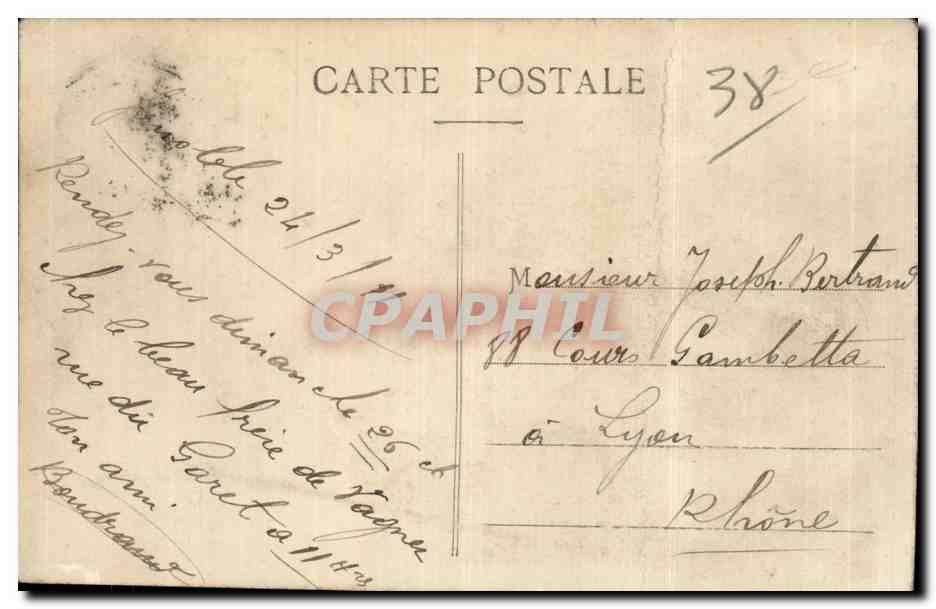 CARTE POSTALE
38
Grenoble 24/3/11
Rendez-vous dimanche 26 ct
chez le beau frère de Vagner
rue du Garet a 11 Hrs
Ton ami
Monsieur Joseph Bertrand
88 Cours Gambetta
à Lyon
Rhône
CPAPHIL